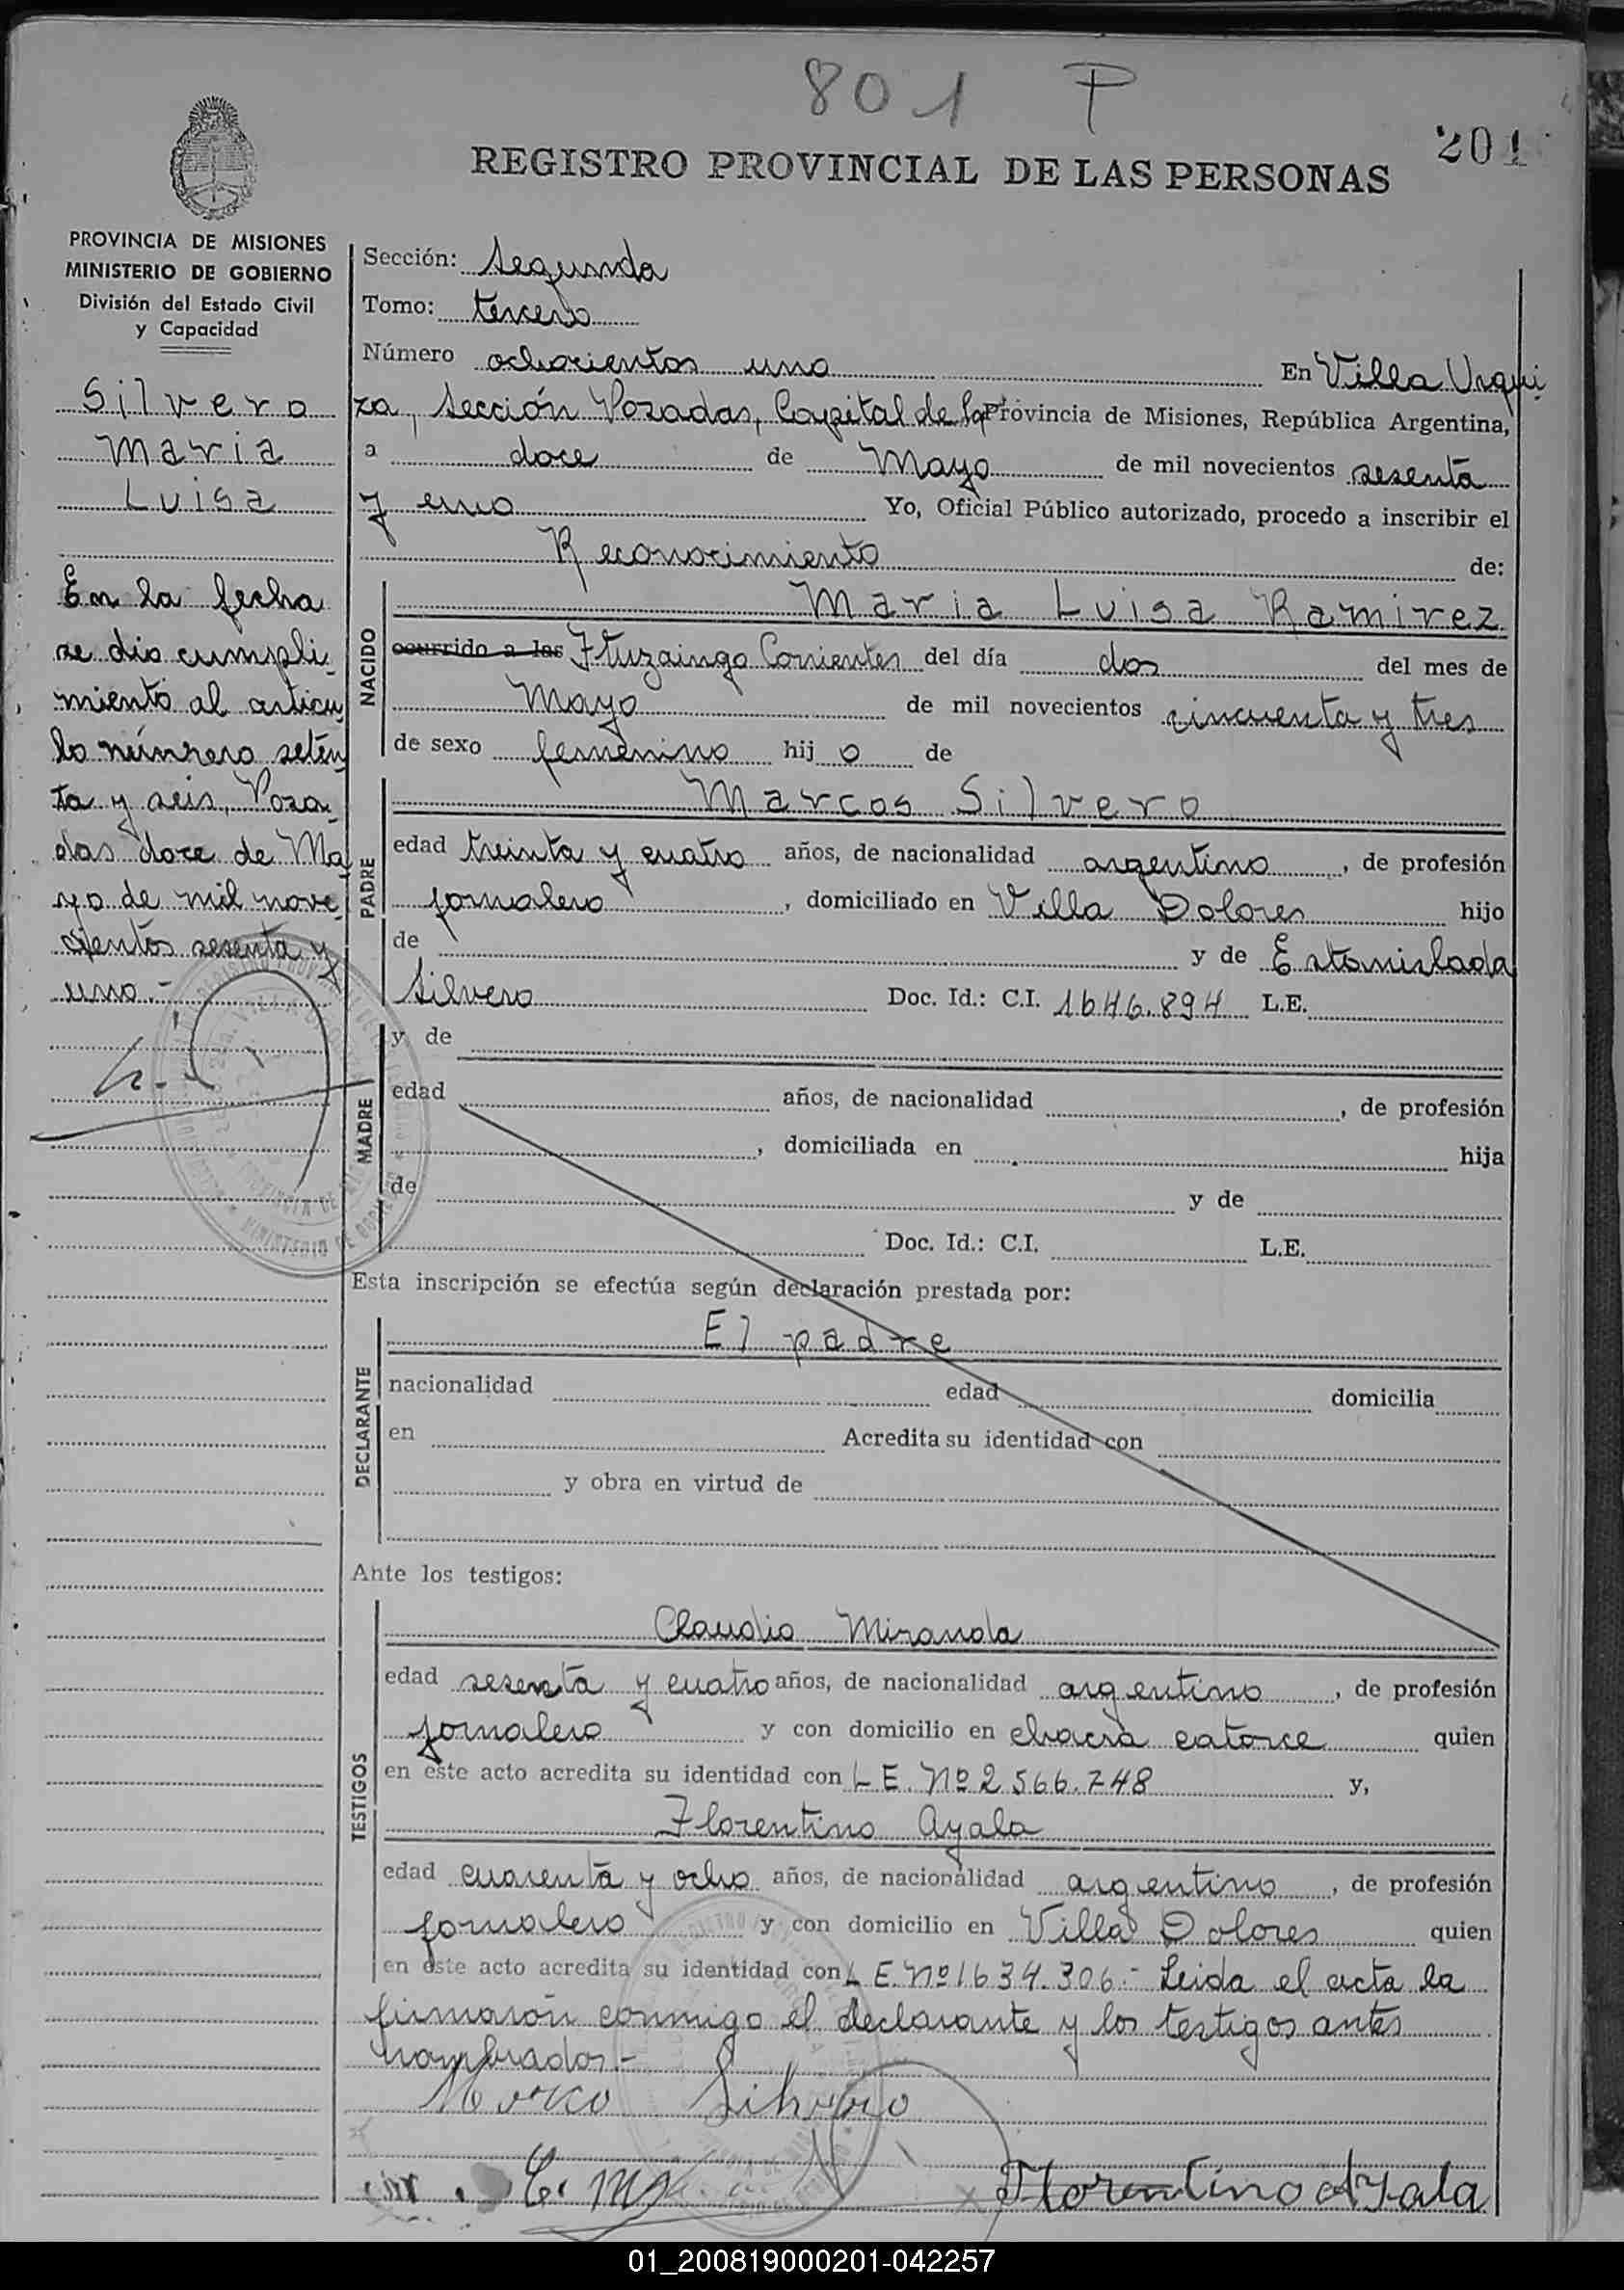 801 P
201
REGISTRO PROVINCIAL DE LAS PERSONAS
PROVINCIA DE MISIONES
MINISTERIO DE GOBIERNO
División del Estado Civil
y Capacidad
Silvero
Maria
Luisa
En la fecha
se dio cumpli
miento al articu
lo número seten
ta y seis, Posa
das doce de Ma
yo de mil nove
cientos sesenta y
uno.-
Sección: Segunda
Tomo: tercero
Número ochocientos uno En Villa Urqui
za, Sección Posadas, Capital de la Provincia de Misiones, República Argentina,
a doce de Mayo de mil novecientos sesenta
y uno Yo, Oficial Público autorizado, procedo a inscribir el
Reconocimiento de:
NACIDO
Maria Luisa Ramirez
ocurrido a las Ituzaingo Corrientes del día dos del mes de
Mayo de mil novecientos cincuenta y tres
de sexo femenino hij o de
PADRE
Marcos Silvero
edad treinta y cuatro años, de nacionalidad argentino, de profesión
jornalero, domiciliado en Villa Dolores hijo
de y de Estanislada
Silvero Doc. Id.: C.I. 1646.894 L.E.
MADRE
y de
edad años, de nacionalidad , de profesión
, domiciliada en hija
de y de
Doc. Id.: C.I. L.E.
Esta inscripción se efectúa según declaración prestada por:
DECLARANTE
El padre
nacionalidad edad domicilia
en Acredita su identidad con
y obra en virtud de
Ante los testigos:
TESTIGOS
Claudio Miranda
edad sesenta y cuatro años, de nacionalidad argentino, de profesión
jornalero y con domicilio en chacra catorce quien
en este acto acredita su identidad con L.E. Nº 2.566.748 y,
Florentino Ayala
edad cuarenta y ocho años, de nacionalidad argentino, de profesión
jornalero y con domicilio en Villa Dolores quien
en este acto acredita su identidad con L.E. Nº 1634.306.- Leida el acta la
firmarón conmigo el declarante y los testigos antes
nombrados.-
Marco Silvero
Florentino Ayala
01_200819000201-042257